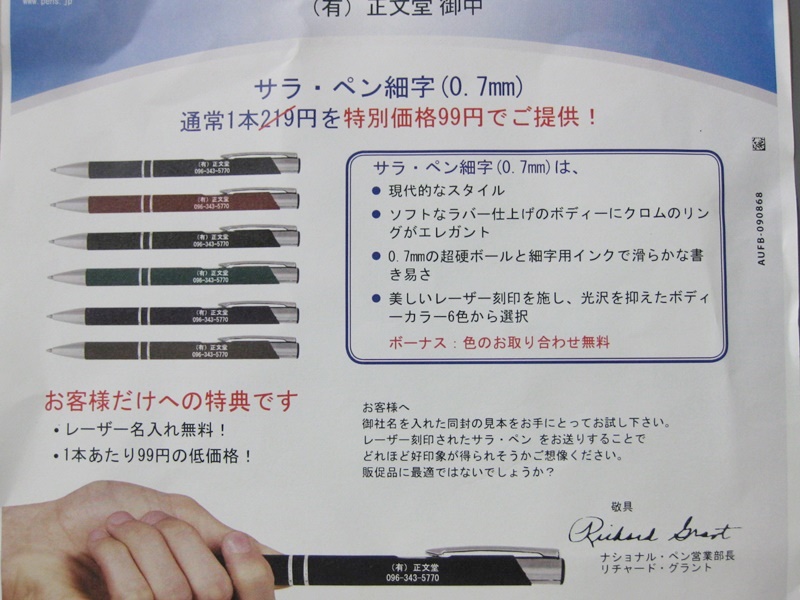 www.pens.jp
(有) 正文堂 御中
サラ・ペン細字(0.7mm)
通常1本219円を特別価格99円でご提供！
(有) 正文堂
096-343-5770
(有) 正文堂
096-343-5770
(有) 正文堂
096-343-5770
(有) 正文堂
096-343-5770
(有) 正文堂
096-343-5770
(有) 正文堂
096-343-5770
サラ・ペン細字(0.7mm)は、
● 現代的なスタイル
● ソフトなラバー仕上げのボディーにクロムのリン
グがエレガント
● 0.7mmの超硬ボールと細字用インクで滑らかな書
き易さ
● 美しいレーザー刻印を施し、光沢を抑えたボディ
ーカラー6色から選択
ボーナス：色のお取り合わせ無料
AUFB-090868
お客様だけへの特典です
・レーザー名入れ無料！
・1本あたり99円の低価格！
お客様へ
御社名を入れた同封の見本をお手にとってお試し下さい。
レーザー刻印されたサラ・ペン をお送りすることで
どれほど好印象が得られそうかご想像ください。
販促品に最適ではないでしょうか？
敬具
Richard Grant
ナショナル・ペン営業部長
リチャード・グラント
(有) 正文堂
096-343-5770